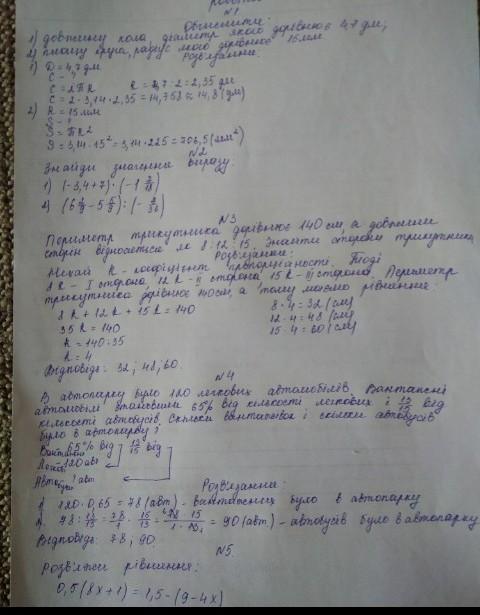 роботи
N1
Обчислити:
1) довжину кола, діаметр якого дорівнює 4,7 дм;
2) площу круга, радіус якого дорівнює 15 мм.
Розв'язання.
1) D = 4,7 дм
C - ?
C = 2πR R = 4,7 : 2 = 2,35 дм
C = 2 · 3,14 · 2,35 = 14,758 ≈ 14,8 (дм)
2) R = 15 мм
S - ?
S = πR²
S = 3,14 · 15² = 3,14 · 225 = 706,5 (мм²)
N2
Знайди значення виразу.
1) (-3,4+7) ·
2)
N3
Периметр трикутника дорівнює 140 см, а довжини
сторін відносяться як 8:12:15. Знайти сторони трикутника.
Розв'язання:
Нехай k - коефіцієнт пропорційності. Тоді
8k - I сторона, 12k - II сторона, 15k - III сторона. Периметр
трикутника дорівнює 140 см, а тому маємо рівняння:
8k + 12k + 15k = 140 8 · 4 = 32 (см)
35k = 140 12 · 4 = 48 (см)
k = 140 : 35 15 · 4 = 60 (см)
k = 4
Відповідь: 32; 48; 60.
N4
В автопарку було 120 легкових автомобілів. Вантажні
автомобілі становили 65% від кількості легкових і 13/15 від
кількості автобусів. Скільки вантажівок і скільки автобусів
було в автопарку?
65% від 13/15 від
120 авт
? авт
Розв'язання:
1. 120 · 0,65 = 78 (авт) - вантажних було в автопарку
2. 78 : 13/15 = 78/1 · 15/13 = 78 · 15 / 1 · 13 = 90 (авт) - автобусів було в автопарку
Відповідь: 78; 90.
N5.
Розв'яжи рівняння:
0,5(8x+1) = 1,5 - (9-4x)